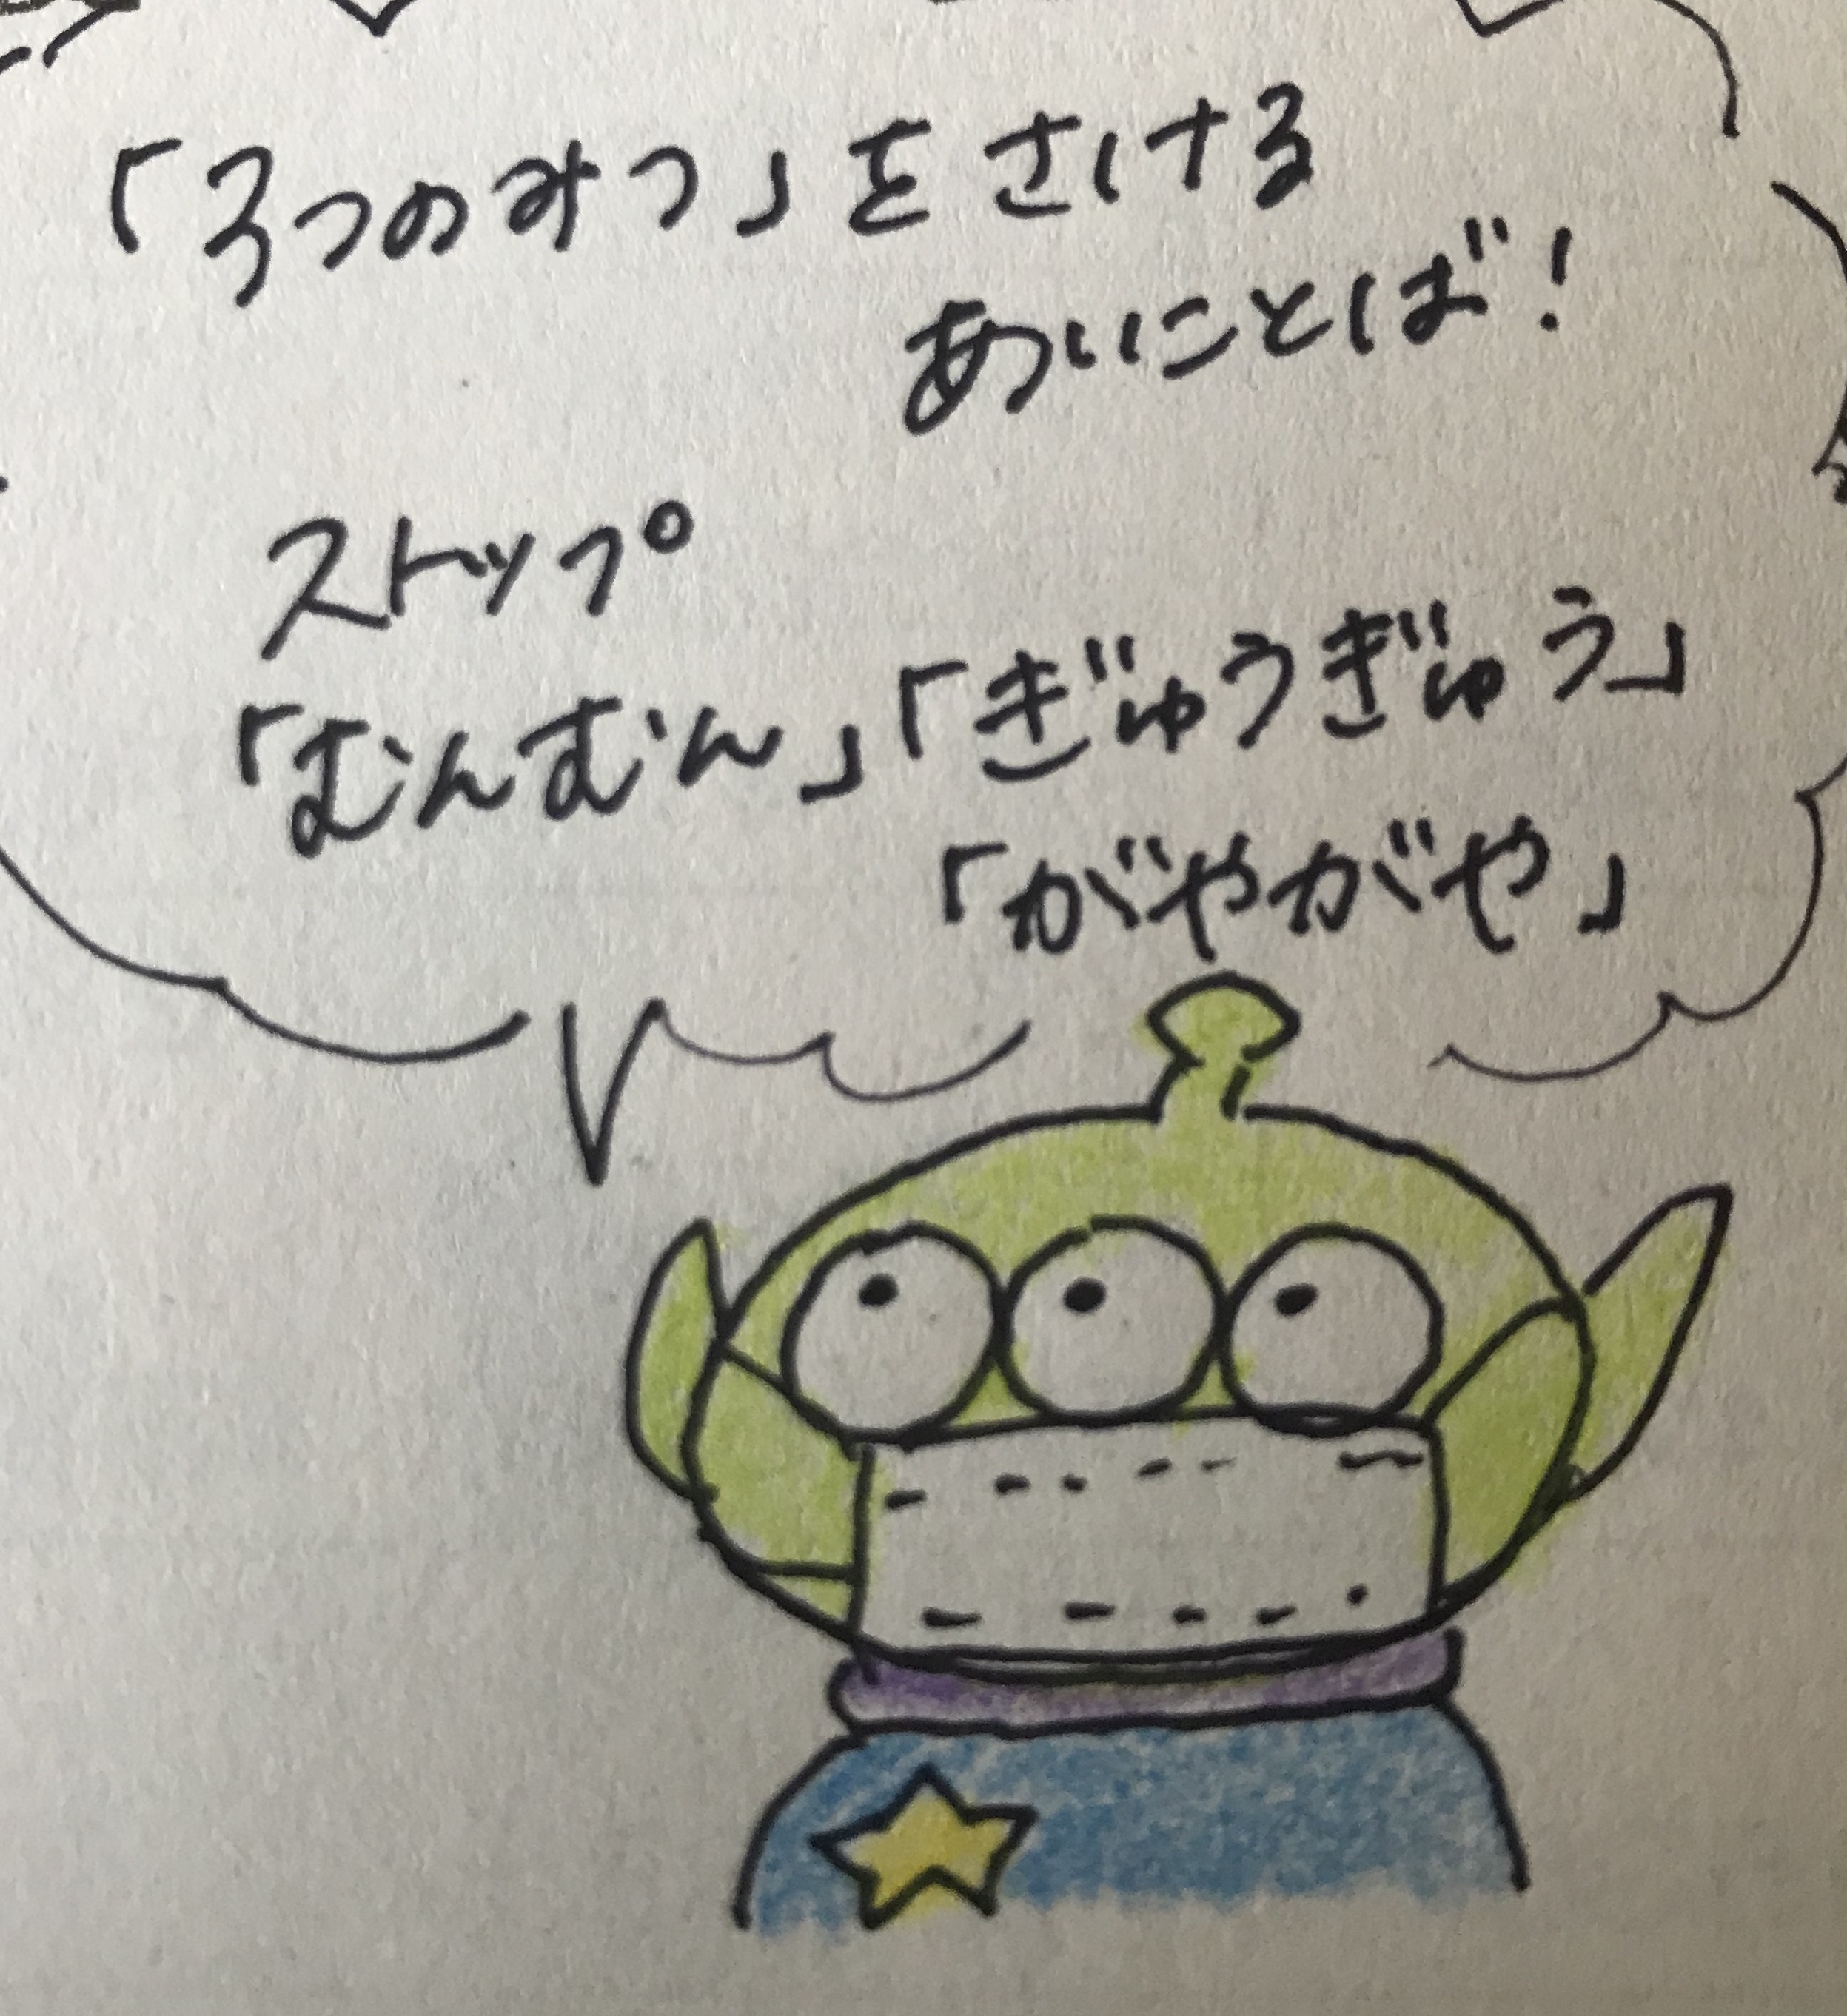 「3つのみつ」をさける
あいことば!
ストップ
「むんむん」「ぎゅうぎゅう」
「がやがや」